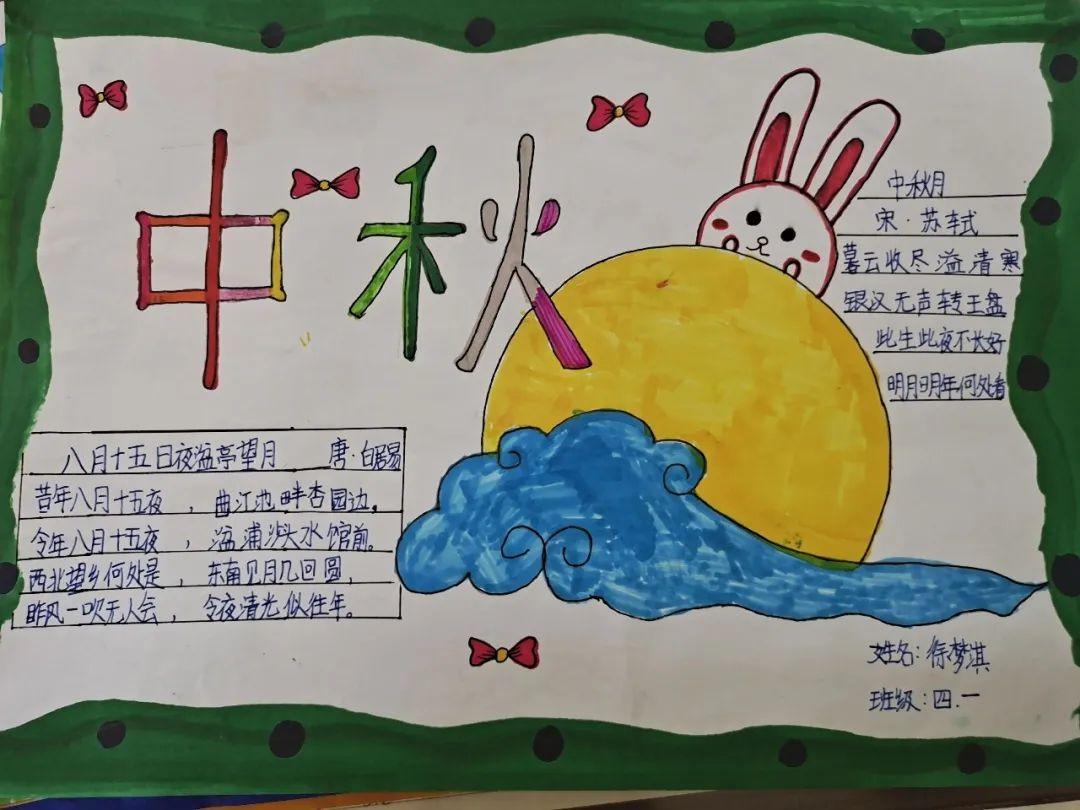 中秋
中秋月
宋·苏轼
暮云收尽溢清寒
银汉无声转玉盘
此生此夜不长好
明月明年何处看
八月十五日夜湓亭望月 唐·白居易
昔年八月十五夜，曲江池畔杏园边。
今年八月十五夜，湓浦沙头水馆前。
西北望乡何处是，东南见月几回圆，
昨风一吹无人会，今夜清光似往年。
姓名：徐梦淇
班级：四.一